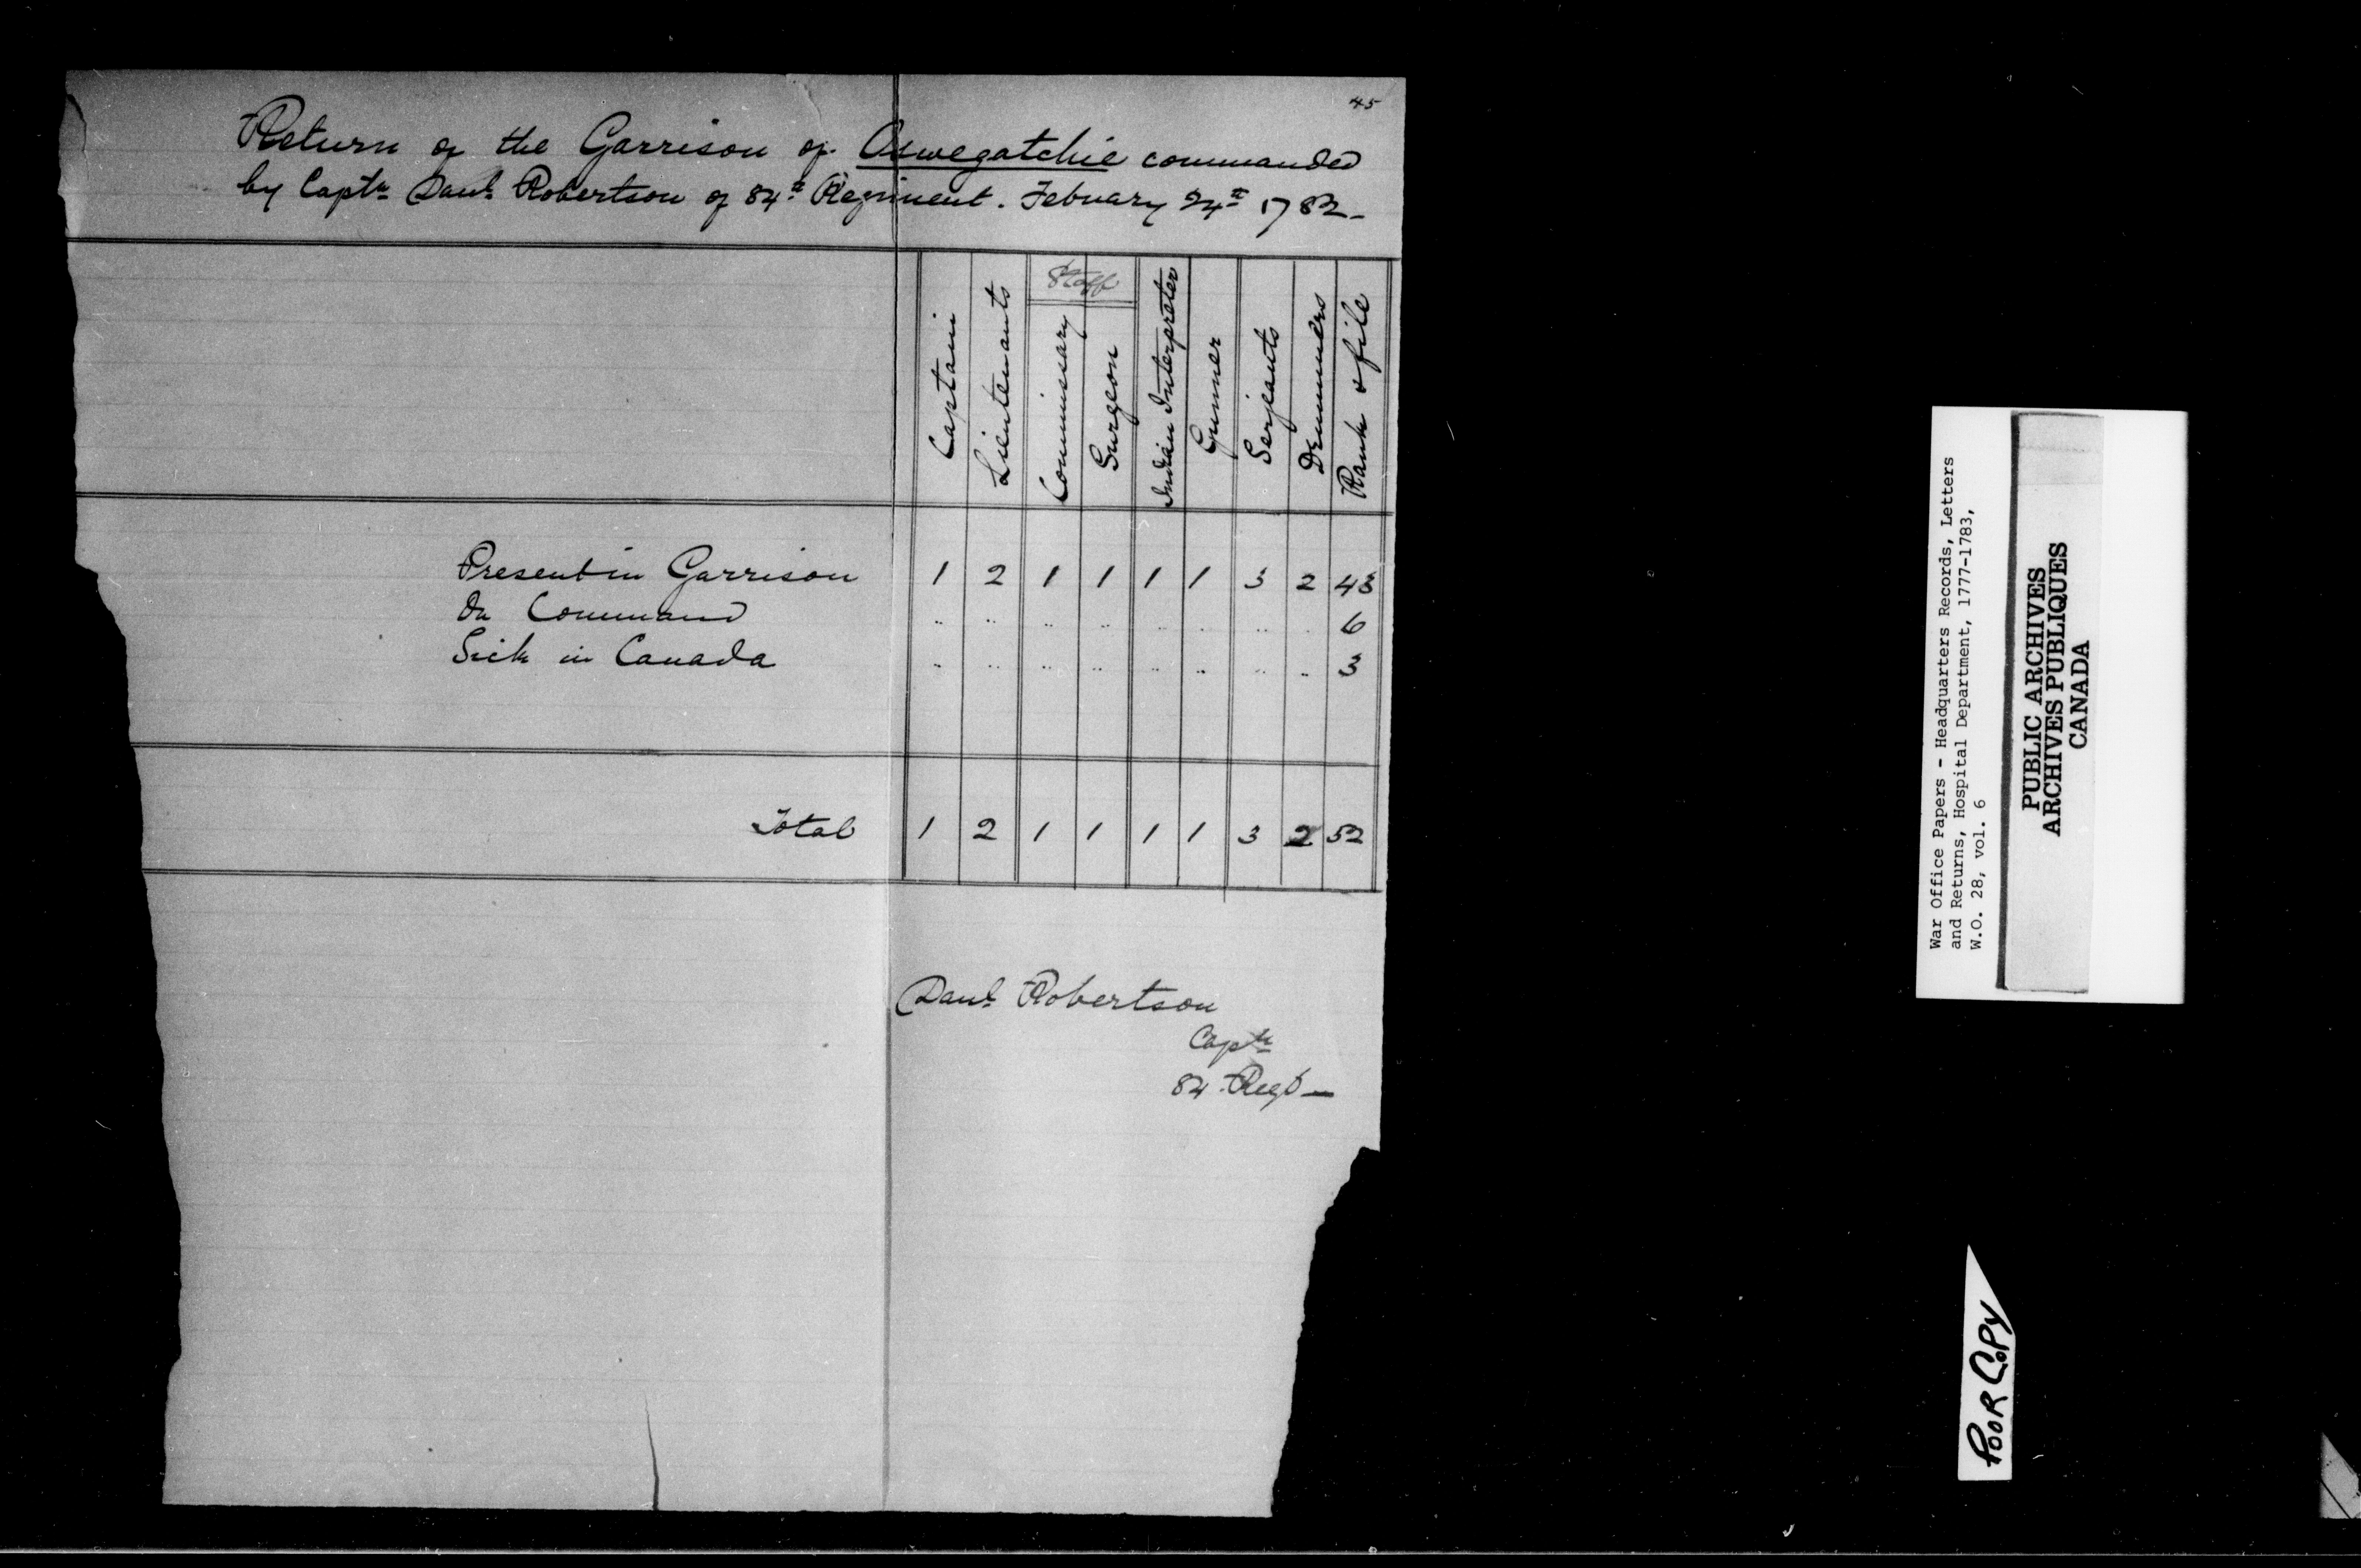 45
Return of the Garrison of Oswegatchie commanded
by Captn Danl Robertson of 84th Regiment. Febuary 24th 1782-
Captain Lieutenants Staff Commissary Surgeon Indian Interpreter Gunner Serjeants Drummers Rank & file
Present in Garrison 1 2 1 1 1 1 3 2 43
On Command .. .. .. .. .. .. .. .. 6
Sick in Canada .. .. .. .. .. .. .. .. 3
Total 1 2 1 1 1 1 3 2 52
Danl Robertson
Captn
84 Regt —
War Office Papers - Headquarters Records, Letters
and Returns, Hospital Department, 1777-1783,
W.O. 28, vol. 6
PUBLIC ARCHIVES
ARCHIVES PUBLIQUES
CANADA
POOR COPY